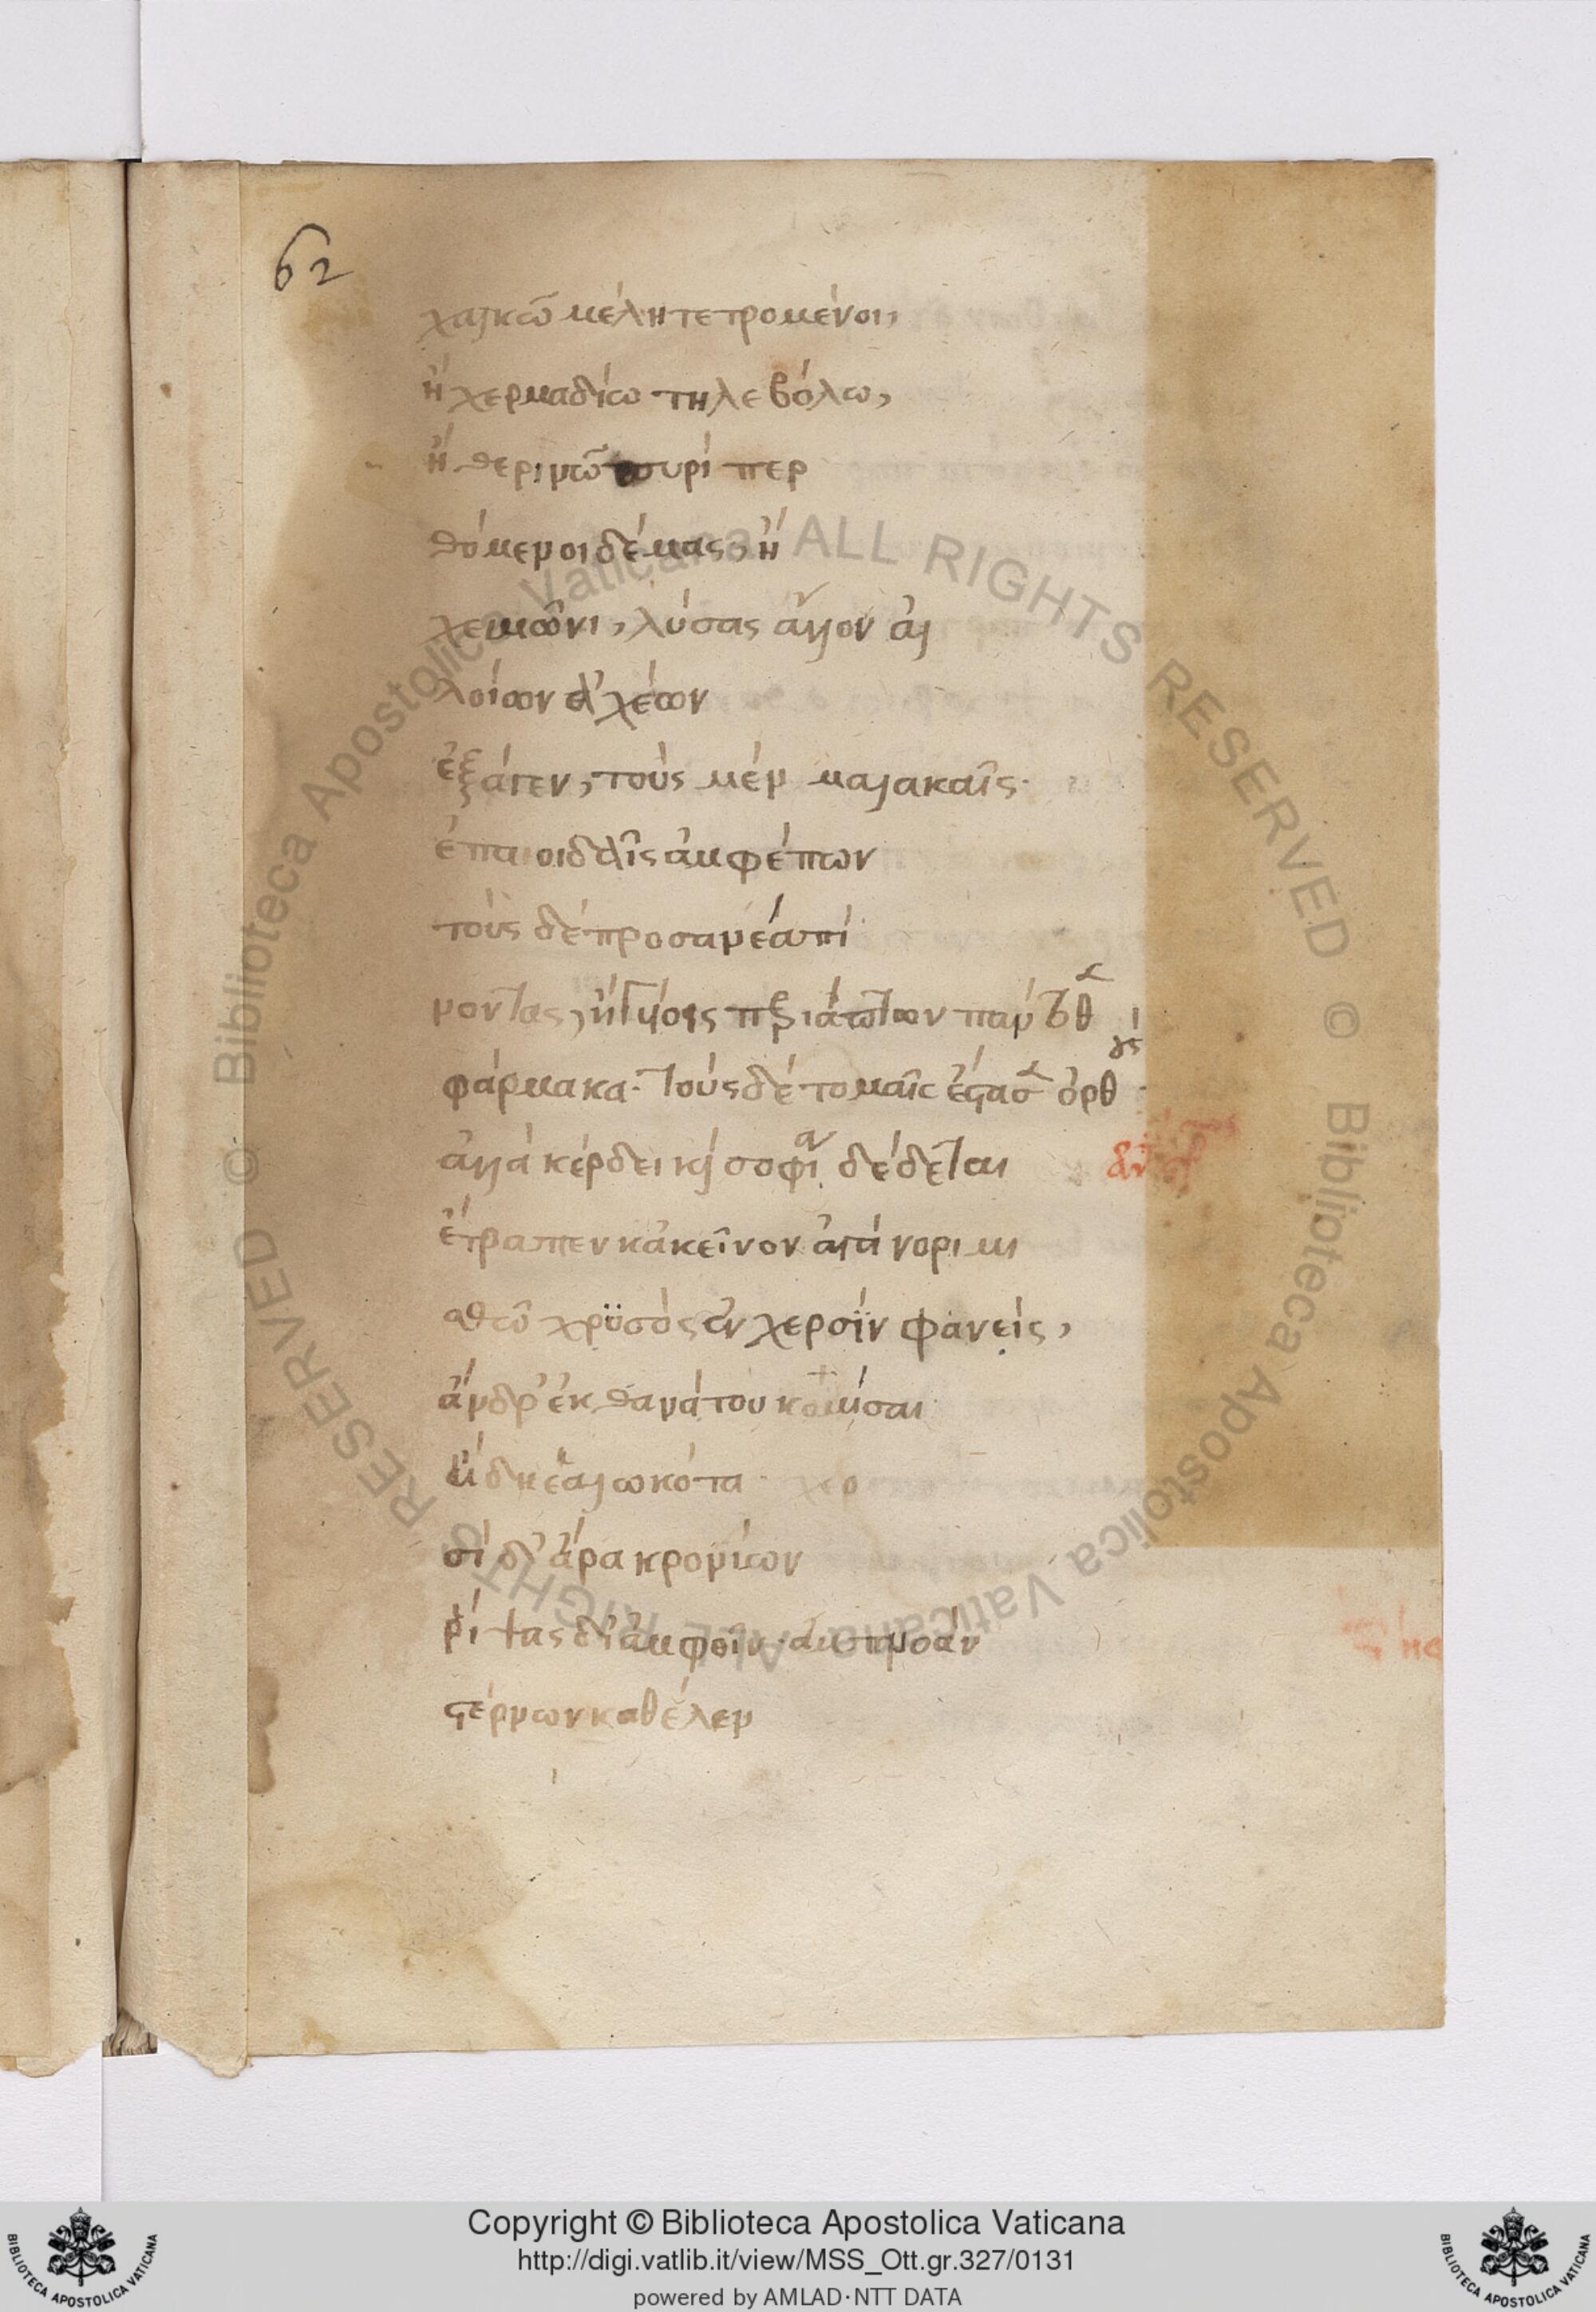 62
χαλκῶ μέλη τετρομένοι,
ἢ χερμαδίω τηλεβόλω,
ἢ θερινῶ πυρὶ περ
θόμενοι δέμας, ἢ
χειμῶνι, λύσας ἄλλον ἀλ
λοίων ἀχέων
ἔξαγεν, τοὺς μὲν μαλακαῖς
ἐπαοιδαῖς ἀμφέπων
τοὺς δὲ προσανέα πί
νοντας, ἢ γυίοις περιάπτων πάντοθε
φάρμακα· τοὺς δὲ τομαῖς ἔστασεν ὀρθούς
ἀλλὰ κέρδει καὶ σοφία δέδεται
ἔτραπεν κἀκεῖνον ἀγάνορι μι
σθῶ χρυσὸς ἐν χερσὶν φανεὶς,
ἄνδρ' ἐκ θανάτου κομίσαι
ἤδη ἑαλωκότα χερ
σὶ δ' ἄρα κρονίων
ῥίψας δι' ἀμφοῖν ἀμπνοὰν
στέρνων καθέλεν
Copyright © Biblioteca Apostolica Vaticana
http://digi.vatlib.it/view/MSS_Ott.gr.327/0131
powered by AMLAD·NTT DATA
BIBLIOTECA APOSTOLICA VATICANA
BIBLIOTECA APOSTOLICA VATICANA
© Biblioteca Apostolica Vaticana ALL RIGHTS RESERVED © Biblioteca Apostolica Vaticana ALL RIGHTS RESERVED